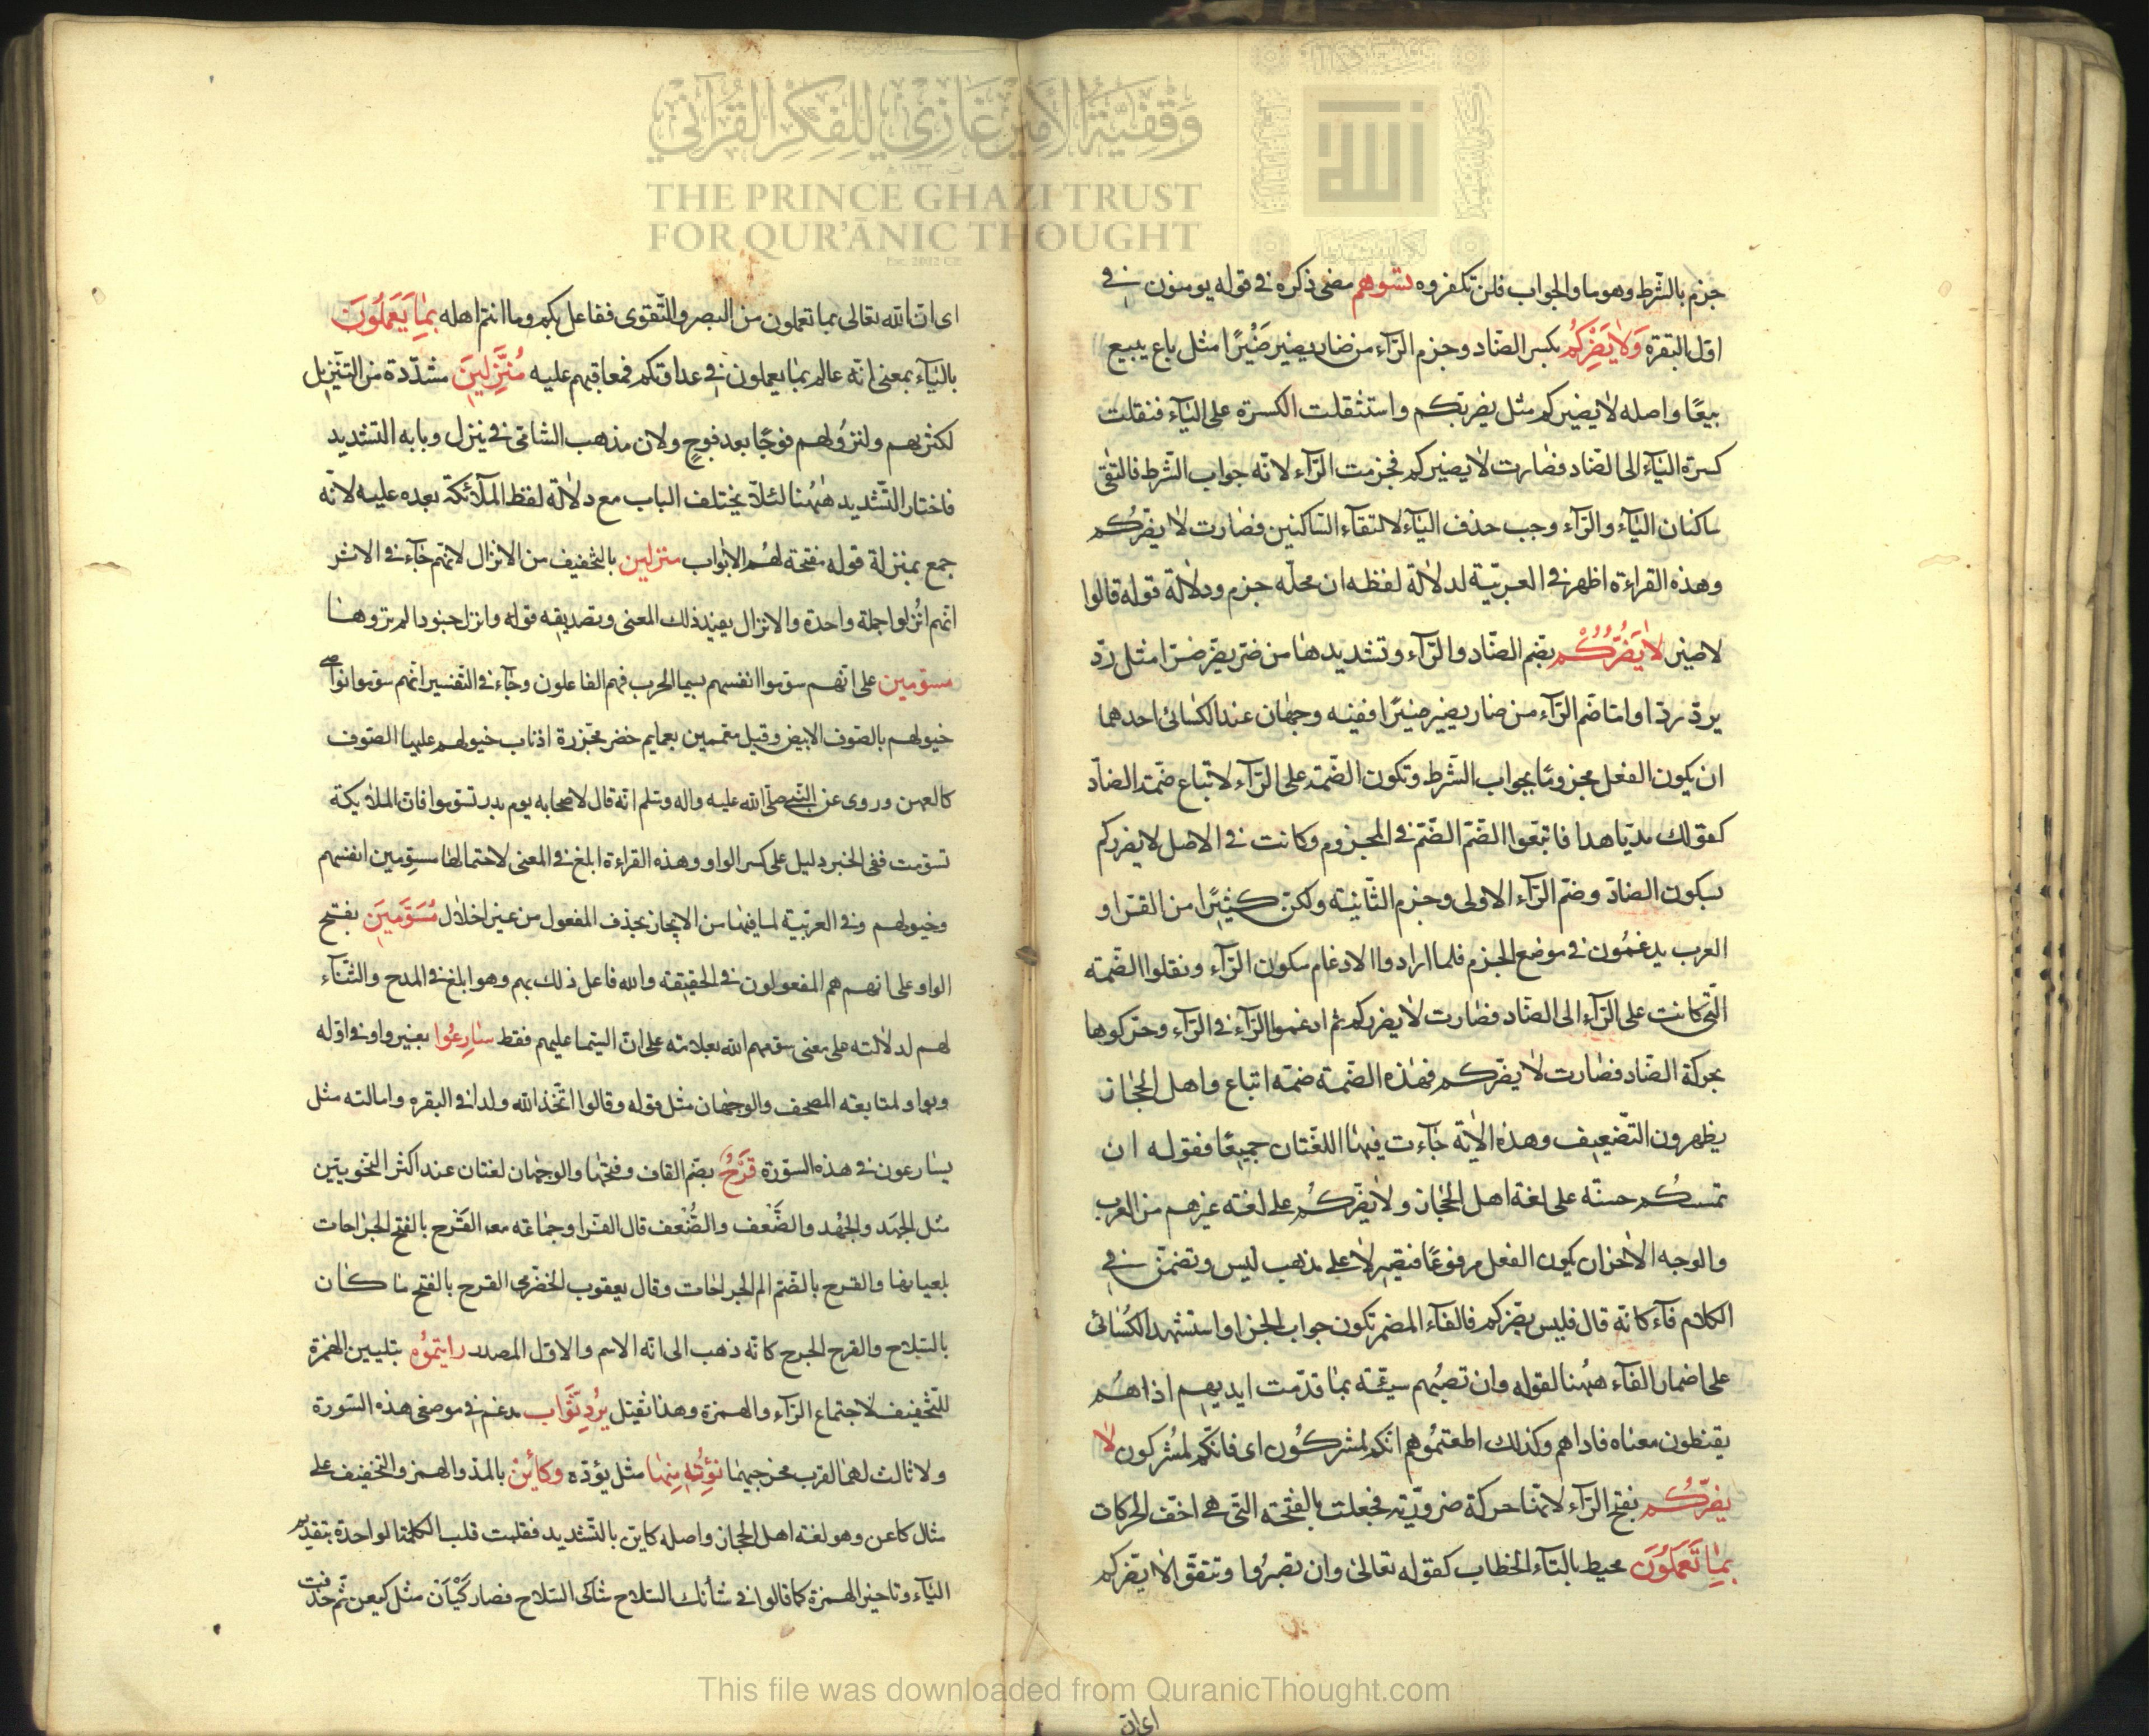 وقفية الأمير غازي للفكر القرآني
THE PRINCE GHAZI TRUST
FOR QUR'ĀNIC THOUGHT
جزم بالشّرط وهو ما والجواب فلن تكفروه تسوهم مضى ذكره في قوله يومنون في
اوّل البقرة وَلا يَضِرْكُم بكسر الضّاد وجزم الرّآء من ضار يضير ضَيْرًا مثل باع يبيع
بيعًا واصله لا يضيركم مثل يضربكم واستثقلت الكسرة على اليآء فنقلت
كسرة اليآء الى الضّاد فصارت لا يضيركم فجزمت الرّآء لانّه جواب الشّرط فالتقى
ساكنان اليآء والرّآء وجب حذف اليآء لالتقآء السّاكنين فصارت لا يضركم
وهذه القراءة اظهر في العربيّة لدلالة لفظه ان محلّه جزم ودلالة قوله قالوا
لا ضير لا يَضُرُّكُم بضم الضّاد والرّآء وتشديدها من ضر يضر ضرّا مثل ردّ
يردّ ردّا وامّا ضم الرّآء من ضار يضير ضيرًا ففيه وجهان عند الكسائى احدهما
ان يكون الفعل مجزومًا بجواب الشّرط وتكون الضّمّة على الرّآء لاتّباع ضمّة الضاد
كقولك مدّ يا هدا فاتبعوا الضّمّ الضّمّ في المجزوم وكانت في الاصل لا يضرركم
بسكون الضادّ وضمّ الرّآء الاولى وجزم الثّانية ولكن كثيرًا من القرّاو
العرب يدغمُون في موضع الجزم فلما ارادوا الادغام سكون الرّآء ونقلوا الضّمّه
الّتي كانت على الرّآء الى الضّاد فصارت لا يضرركم ثم ادغموا الرّآء في الرّآء وحرّكوها
بحركة الضّاد فصارت لا يضرّكم فهذه الضّمة ضمّه اتباع واهل الحجاز
يظهرون التّضعيف وهذه الآية جآءت فيها اللغتان جميعًا فقوله ان
تمسسكُم حسنه على لغة اهل الحجاز ولا يضرّكُم على لغه غيرهم من العرب
والوجه الآخر ان يكون الفعل مرفوعًا فتصير لا على مذهب ليس وتضمر في
الكلام فآء كانّه قال فليس يضرّكم فالفآء المضمر تكون جواب الجزا واستشهد الكسائى
على اضمار الفآء ههُنا لقوله وان تصبُهم سيّئة بما قدّمت ايديهم اذا هُم
يقنطون معناه فاذاهم وكذلك اطعتمُوهم انّكم لمشركُون اى فانّكم لمُشركون لا
يضرّكُم بفتح الرّآء لانّها حركة ضروريّة فجعلت بالفتحة التي هي اخفّ الحركات
بِما تَعمَلُونَ محيط بالتآء الخطاب كقوله تعالى وان تصبرُوا وتتقوا لا يضركم
اى ان
اى انّ الله تعالى بما تعملون من الصبر والتّقوى ففاعل بكم وما انتم اهله بِما يَعمَلُونَ
باليآء بمعنى انّه عالم بما يعملون في عداوتكم فمعاقبهم عليه مُنَزَّلِينَ مشدّدة من التنزيل
لكثرتهم ولنزُولهم فوجًا بعد فوجٍ ولان مذهب الشامى في ينزل وبابه التشديد
فاختار التّشديد هٰهُنا لئلّا يختلف الباب مع دلالة لفظ الملآئكة بعده عليه لانّه
جمع بمنزلة قوله مفتحة لهُم الابواب منزلين بالتّخفيف من الانزال لانّهم جآء في الاثر
انّهم انُزلوا جملة واحدة والانزال يفيد ذلك المعنى وتصديقه قوله وانزل جنودا لم تروها
مسوّمين على انّهم سوّموا انفسهم بسيما الحرب فهم الفاعلون وجآء في التّفسير انّهم سوّموا نواصى
خيولهم بالصّوف الابيض وقيل معمّمين بعمايم خضر مجزرة اذناب خيولهم عليها الصّوف
كالعهن وروى عن النّبي صلّى الله عليه واله وسلم انّه قال لاصحابه يوم بدر تسوّموا فانّ الملائكة
تسوّمت ففى الخبر دليل على كسر الواو وهذه القراءة ابلغ في المعنى لاحتمالها مسوّمين انفسهم
وخيولهم وفي العربيّة لما فيها من الايجاز بحذف المفعول من غير اخلال مُسَوَّمينَ بفتح
الواو على انهم هم المفعولون في الحقيقه والله فاعل ذلك بهم وهو ابلغ في المدح والثّنآء
لهم لدلالته على معنى سوّمهم الله بعلامته على ان السّيما عليهم فقط سارِعُوا بغير واو في اوّله
وبواو لمتابعة المصحف والوجهان مثل قوله وقالوا اتّخذ الله ولدا في البقره وامالته مثل
يسارعون في هذه السّورة قَرْحٌ بضم القاف وفتحها والوجهان لغتان عند اكثر النحويين
مثل الجهَد والجُهد والضَّعف والضُّعف قال الفرّا وجماعه معه القَرح بالفتح الجراحات
باعيانها والقرح بالضّم الم الجراحات وقال يعقوب الحضرمى القرح بالفتح ما كان
بالسّلاح والقرح الجرح كانّه ذهب الى انّه الاسم والاوّل المصدر رايتموُه بتليين الهمزة
للتّخفيف لاجتماع الرّآء والهمزة وهذا ثقيل يُرِد ثَّوَاب مدغم في موضعى هذه السّورة
ولا ثالث لهما لقرب مخرجيهما نؤتِه مِنها مثل يؤدّه وكآئن بالمدّ والهمز والتّخفيف على
مثال كاعن وهو لغة اهل الحجاز واصله كاين بالتّشديد فقلبت قلب الكلمة الواحدة بتقديم
اليآء وتاخير الهمزة كما قالوا في شأنك السّلاح شاكى السّلاح فصار كَيْأن مثل كيعن ثمّ حذفت
This file was downloaded from QuranicThought.com